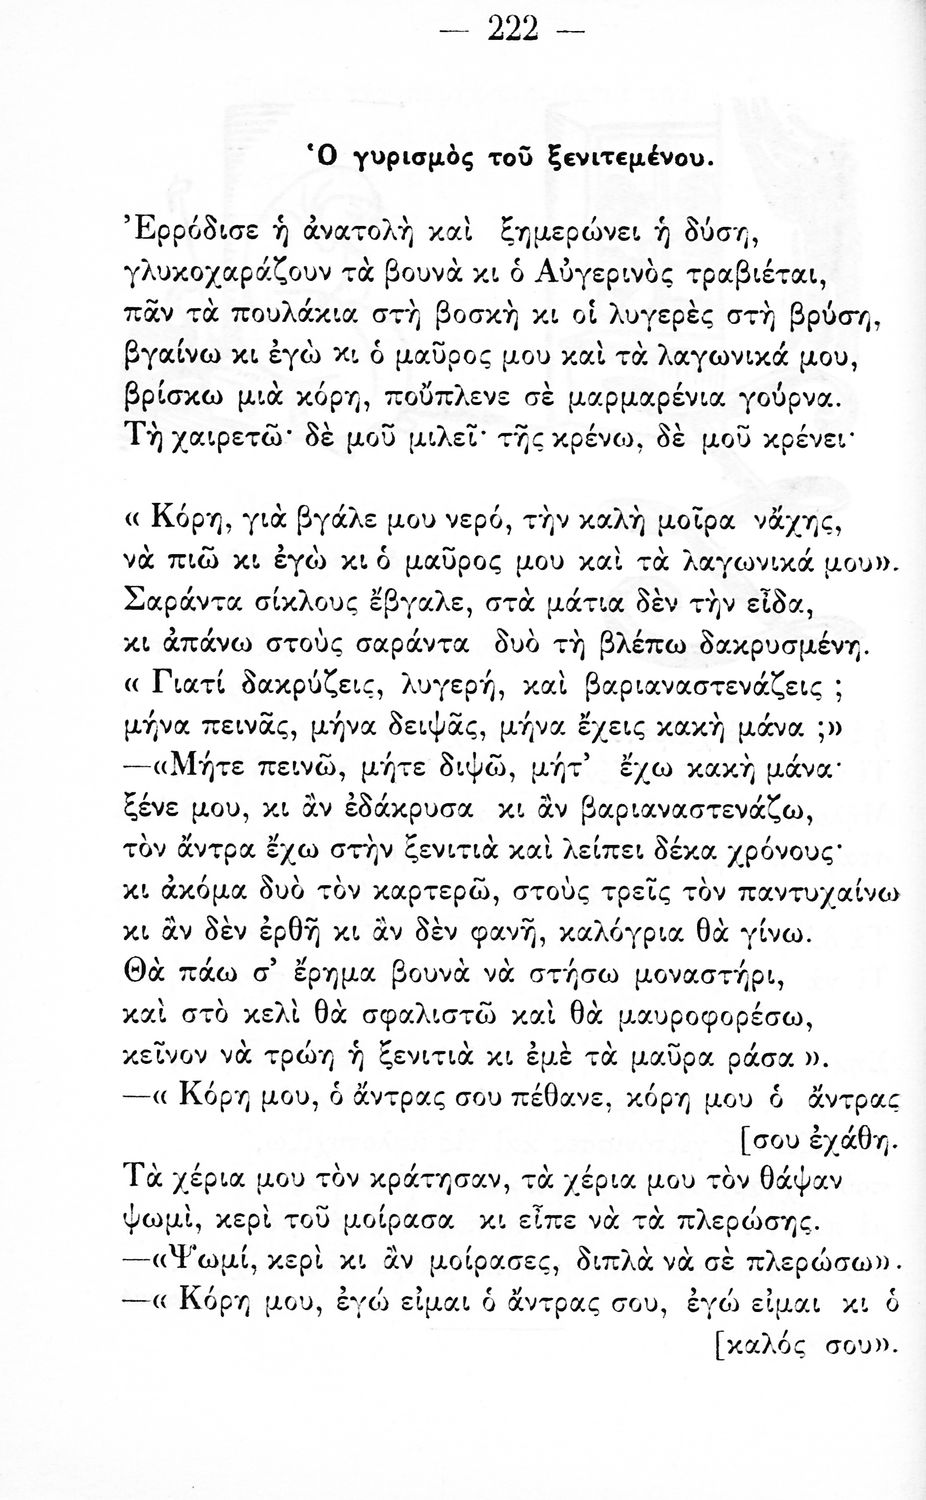 — 222 —
Ὁ γυρισμὸς τοῦ ξενιτεμένου.
Ἐρρόδισε ἡ ἀνατολὴ καὶ ξημερώνει ἡ δύση,
γλυκοχαράζουν τὰ βουνὰ κι ὁ Αὐγερινὸς τραβιέται,
πᾶν τὰ πουλάκια στὴ βοσκὴ κι οἱ λυγερὲς στὴ βρύση,
βγαίνω κι ἐγὼ κι ὁ μαῦρος μου καὶ τὰ λαγωνικά μου,
βρίσκω μιὰ κόρη, ποὔπλενε σὲ μαρμαρένια γούρνα.
Τὴ χαιρετῶ· δὲ μοῦ μιλεῖ· τῆς κρένω, δὲ μοῦ κρένει·
« Κόρη, γιὰ βγάλε μου νερό, τὴν καλὴ μοῖρα νἄχῃς,
νὰ πιῶ κι ἐγὼ κι ὁ μαῦρος μου καὶ τὰ λαγωνικά μου».
Σαράντα σίκλους ἔβγαλε, στὰ μάτια δὲν τὴν εἶδα,
κι ἀπάνω στοὺς σαράντα δυὸ τὴ βλέπω δακρυσμένη.
« Γιατί δακρύζεις, λυγερή, καὶ βαριαναστενάζεις ;
μήνα πεινᾶς, μήνα δειψᾶς, μήνα ἔχεις κακὴ μάνα ;»
—«Μήτε πεινῶ, μήτε διψῶ, μήτ’ ἔχω κακὴ μάνα·
ξένε μου, κι ἂν ἐδάκρυσα κι ἂν βαριαναστενάζω,
τὸν ἄντρα ἔχω στὴν ξενιτιὰ καὶ λείπει δέκα χρόνους·
κι ἀκόμα δυὸ τὸν καρτερῶ, στοὺς τρεῖς τὸν παντυχαίνω
κι ἂν δὲν ἐρθῆ κι ἂν δὲν φανῆ, καλόγρια θὰ γίνω.
Θὰ πάω σ’ ἔρημα βουνὰ νὰ στήσω μοναστήρι,
καὶ στὸ κελὶ θὰ σφαλιστῶ καὶ θὰ μαυροφορέσω,
κεῖνον νὰ τρώῃ ἡ ξενιτιὰ κι ἐμὲ τὰ μαῦρα ράσα ».
—« Κόρη μου, ὁ ἄντρας σου πέθανε, κόρη μου ὁ ἄντρας
[σου ἐχάθη.
Τὰ χέρια μου τὸν κράτησαν, τὰ χέρια μου τὸν θάψαν
ψωμὶ, κερὶ τοῦ μοίρασα κι εἶπε νὰ τὰ πλερώσῃς.
—«Ψωμί, κερὶ κι ἂν μοίρασες, διπλὰ νὰ σὲ πλερώσω».
—« Κόρη μου, ἐγώ εἰμαι ὁ ἄντρας σου, ἐγώ εἰμαι κι ὁ
[καλός σου».